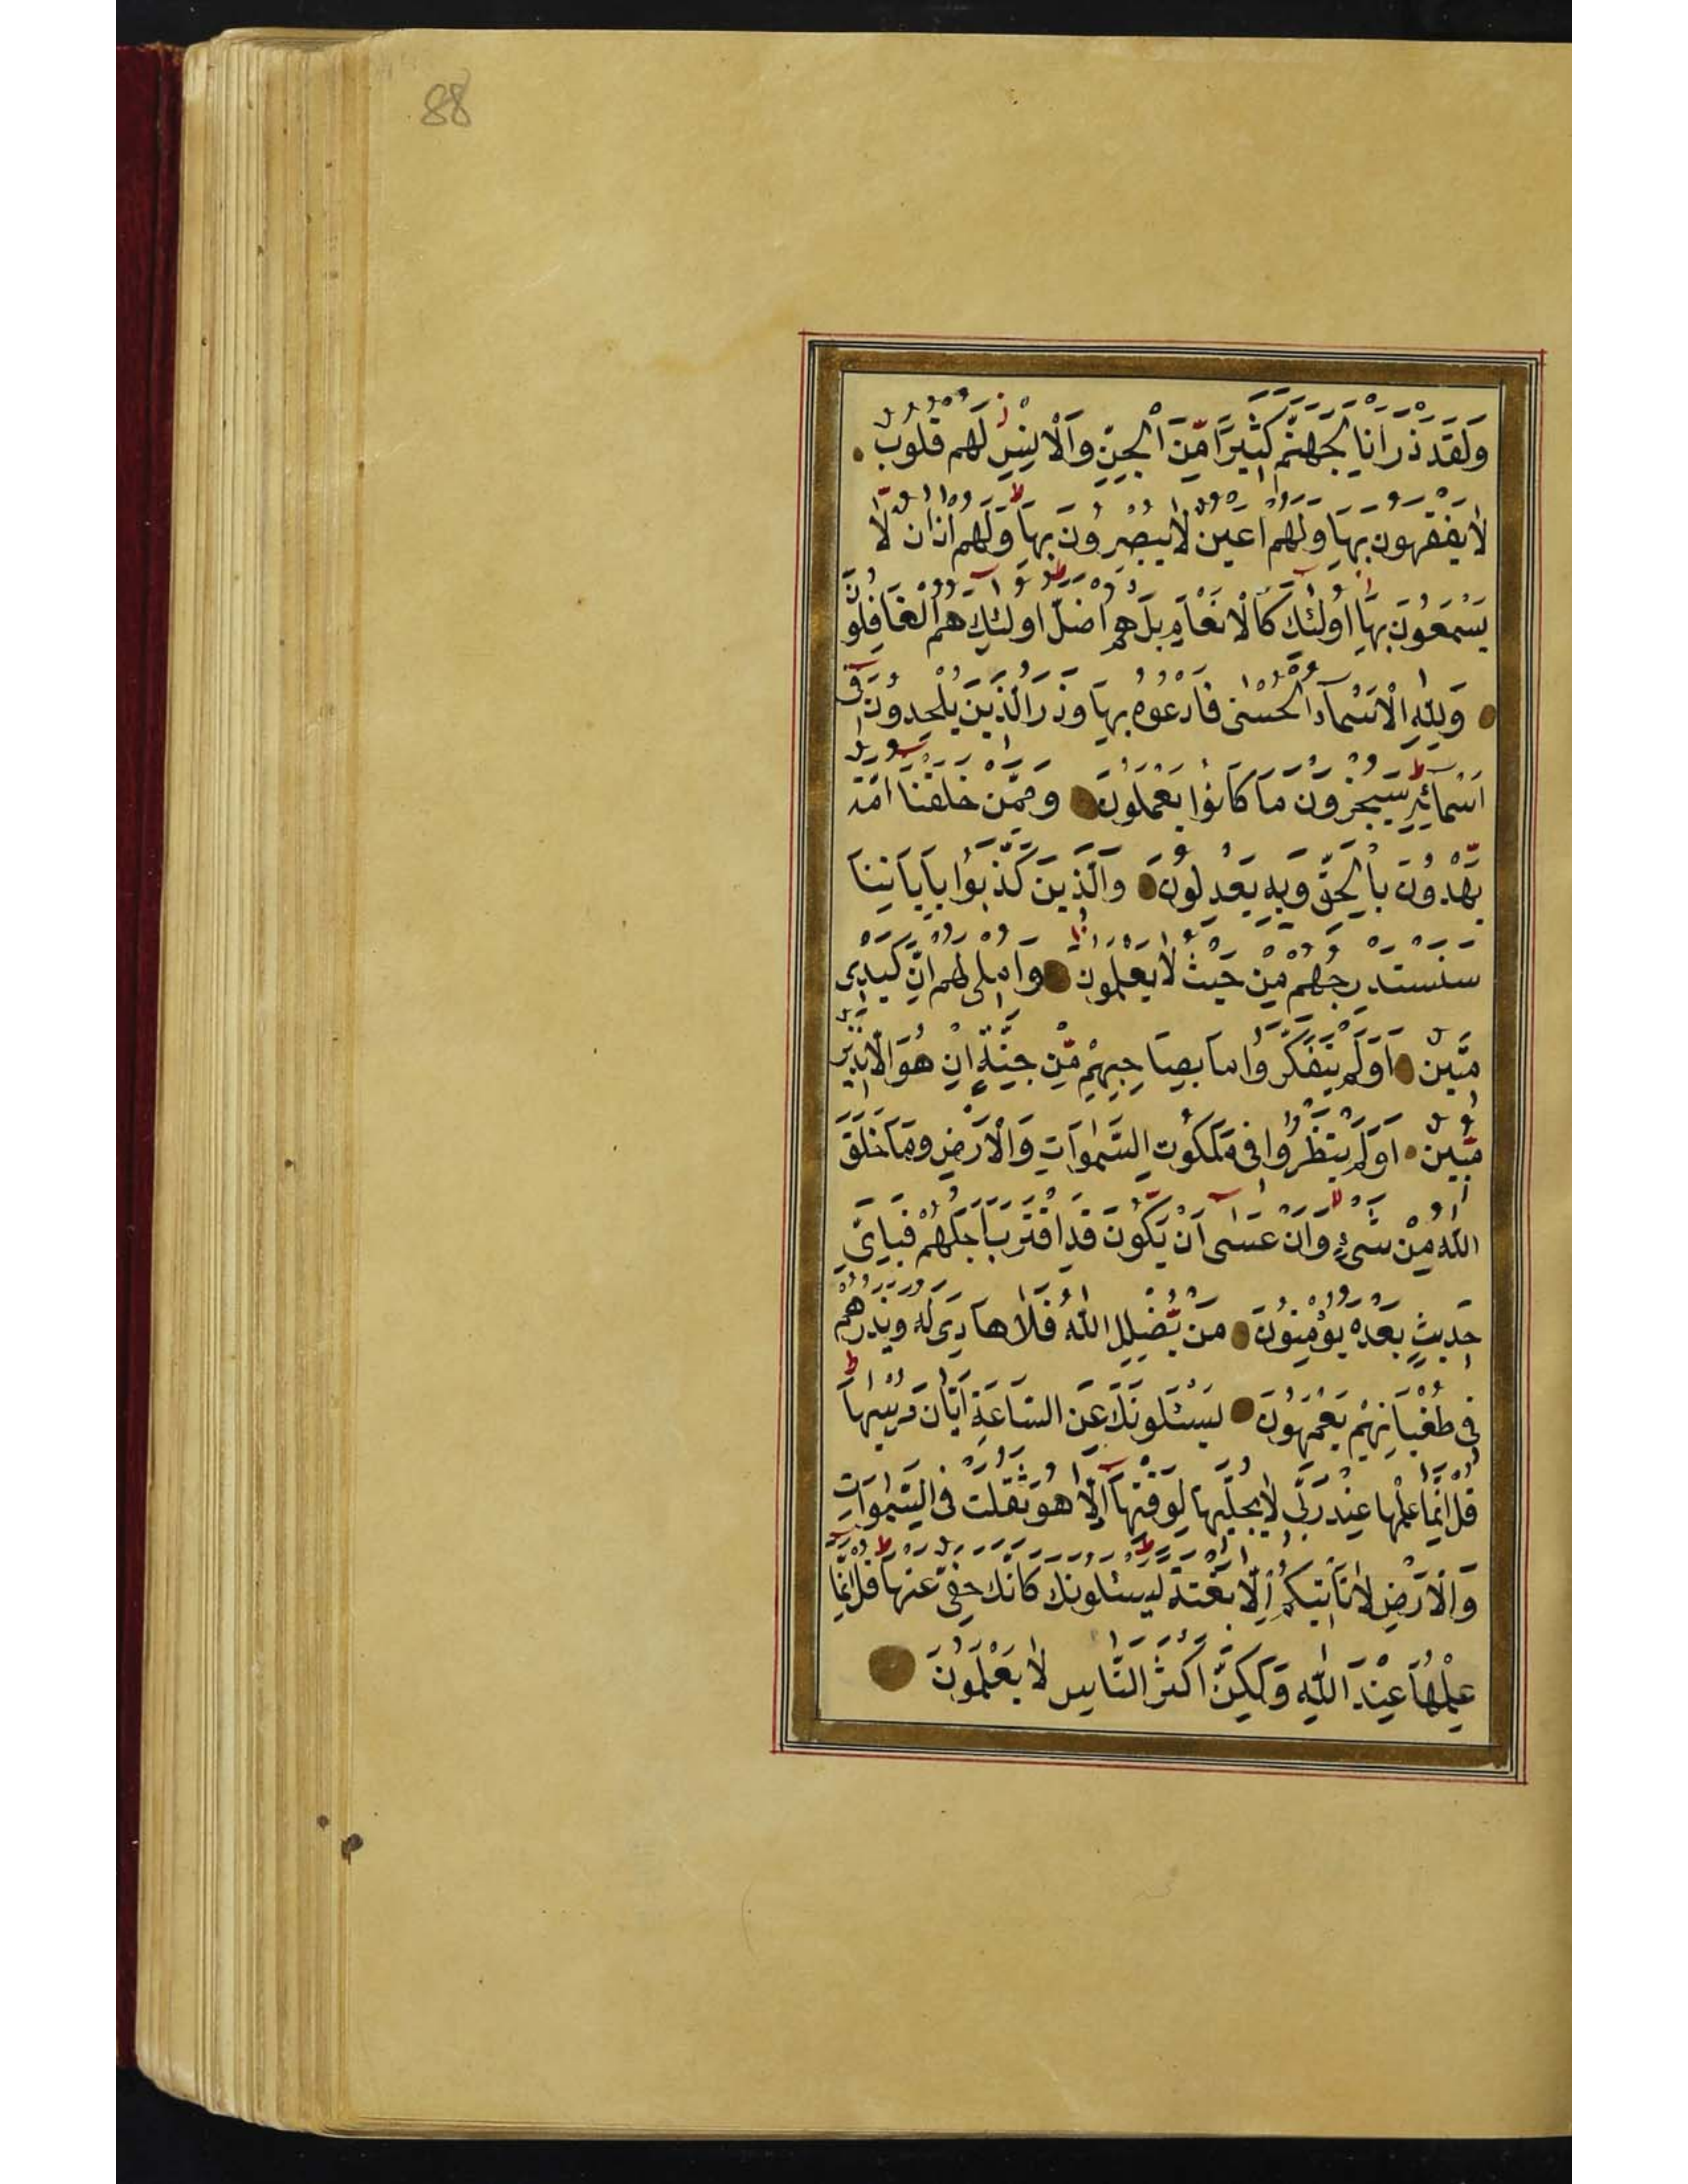 88
وَلَقَدْ ذَرَأْنَا لِجَهَنَّمَ كَثِيرًا مِّنَ الْجِنِّ وَالْاِنْسِ لَهُمْ قُلُوبٌ
لَا يَفْقَهُونَ بِهَا وَلَهُمْ اَعْيُنٌ لَا يُبْصِرُونَ بِهَا وَلَهُمْ اٰذَانٌ لَّا
يَسْمَعُونَ بِهَا اُولٰئِكَ كَالْاَنْعَامِ بَلْ هُمْ اَضَلُّ اُولٰئِكَ هُمُ الْغَافِلُونَ
وَلِلّٰهِ الْاَسْمَآءُ الْحُسْنٰى فَادْعُوهُ بِهَا وَذَرُوا الَّذِينَ يُلْحِدُونَ فِى
اَسْمَائِهِ سَيُجْزَوْنَ مَا كَانُوا يَعْمَلُونَ وَمِمَّنْ خَلَقْنَا اُمَّةٌ
يَّهْدُونَ بِالْحَقِّ وَبِهِ يَعْدِلُونَ وَالَّذِينَ كَذَّبُوا بِاٰيَاتِنَا
سَنَسْتَدْرِجُهُمْ مِّنْ حَيْثُ لَا يَعْلَمُونَ وَاُمْلِى لَهُمْ اِنَّ كَيْدِى
مَتِينٌ اَوَلَمْ يَتَفَكَّرُوا مَا بِصَاحِبِهِمْ مِّنْ جِنَّةٍ اِنْ هُوَ اِلَّا نَذِيرٌ
مُّبِينٌ اَوَلَمْ يَنْظُرُوا فِى مَلَكُوتِ السَّمٰوَاتِ وَالْاَرْضِ وَمَا خَلَقَ
اللّٰهُ مِنْ شَىْءٍ وَّاَنْ عَسٰى اَنْ يَّكُونَ قَدِ اقْتَرَبَ اَجَلُهُمْ فَبِاَىِّ
حَدِيثٍ بَعْدَهُ يُؤْمِنُونَ مَنْ يُّضْلِلِ اللّٰهُ فَلَا هَادِىَ لَهُ وَيَذَرُهُمْ
فِى طُغْيَانِهِمْ يَعْمَهُونَ يَسْئَلُونَكَ عَنِ السَّاعَةِ اَيَّانَ مُرْسٰيهَا
قُلْ اِنَّمَا عِلْمُهَا عِنْدَ رَبِّى لَا يُجَلِّيهَا لِوَقْتِهَا اِلَّا هُوَ ثَقُلَتْ فِى السَّمٰوَاتِ
وَالْاَرْضِ لَا تَأْتِيكُمْ اِلَّا بَغْتَةً يَسْئَلُونَكَ كَاَنَّكَ حَفِىٌّ عَنْهَا قُلْ اِنَّمَا
عِلْمُهَا عِنْدَ اللّٰهِ وَلٰكِنَّ اَكْثَرَ النَّاسِ لَا يَعْلَمُونَ